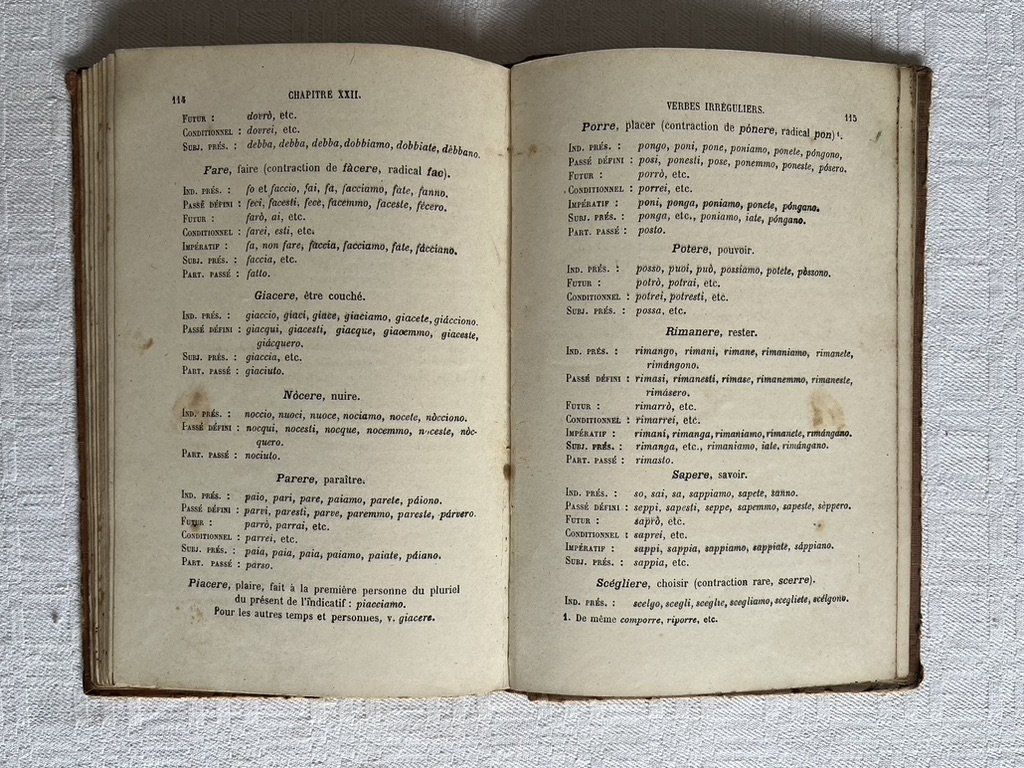 114
CHAPITRE XXII.
FUTUR : dovrò, etc.
CONDITIONNEL : dovrei, etc.
SUBJ. PRÉS. : debba, debba, debba, dobbiamo, dobbiate, dèbbano.
Fare, faire (contraction de fàcere, radical fac).
IND. PRÉS. : fo et faccio, fai, fa, facciamo, fate, fanno.
PASSÉ DÉFINI : feci, facesti, fece, facemmo, faceste, fécero.
FUTUR : farò, ai, etc.
CONDITIONNEL : farei, esti, etc.
IMPÉRATIF : fa, non fare, faccia, facciamo, fate, fàcciano.
SUBJ. PRÉS. : faccia, etc.
PART. PASSÉ : fatto.
Giacere, être couché.
IND. PRÉS. : giaccio, giaci, giace, giaciamo, giacete, giácciono.
PASSÉ DÉFINI : giacqui, giacesti, giacque, giacemmo, giaceste,
giácquero.
SUBJ. PRÉS. : giaccia, etc.
PART. PASSÉ : giaciuto.
Nòcere, nuire.
IND. PRÉS. : noccio, nuoci, nuoce, nociamo, nocete, nòcciono.
PASSÉ DÉFINI : nocqui, nocesti, nocque, nocemmo, noceste, nòc-
quero.
PART. PASSÉ : nociuto.
Parere, paraître.
IND. PRÉS. : paio, pari, pare, paiamo, parete, páiono.
PASSÉ DÉFINI : parvi, paresti, parve, paremmo, pareste, párvero.
FUTUR : parrò, parrai, etc.
CONDITIONNEL : parrei, etc.
SUBJ. PRÉS. : paia, paia, paia, paiamo, paiate, páiano.
PART. PASSÉ : parso.
Piacere, plaire, fait à la première personne du pluriel
du présent de l'indicatif : piacciamo.
Pour les autres temps et personnes, v. giacere.
VERBES IRRÉGULIERS.
115
Porre, placer (contraction de pónere, radical pon)¹.
IND. PRÉS. : pongo, poni, pone, poniamo, ponete, póngono,
PASSÉ DÉFINI : posi, ponesti, pose, ponemmo, poneste, pósero.
FUTUR : porrò, etc.
CONDITIONNEL : porrei, etc.
IMPÉRATIF : poni, ponga, poniamo, ponete, póngano.
SUBJ. PRÉS. : ponga, etc., poniamo, iate, póngano.
PART. PASSÉ : posto.
Potere, pouvoir.
IND. PRÉS. : posso, puoi, può, possiamo, potete, pòssono.
FUTUR : potrò, potrai, etc.
CONDITIONNEL : potrei, potresti, etc.
SUBJ. PRÉS. : possa, etc.
Rimanere, rester.
IND. PRÉS. : rimango, rimani, rimane, rimaniamo, rimanete,
rimángono.
PASSÉ DÉFINI : rimasi, rimanesti, rimase, rimanemmo, rimaneste,
rimásero.
FUTUR : rimarrò, etc.
CONDITIONNEL : rimarrei, etc.
IMPÉRATIF : rimani, rimanga, rimaniamo, rimanete, rimángano.
SUBJ. PRÉS. : rimanga, etc., rimaniamo, iate, rimángano.
PART. PASSÉ : rimasto.
Sapere, savoir.
IND. PRÉS. : so, sai, sa, sappiamo, sapete, sanno.
PASSÉ DÉFINI : seppi, sapesti, seppe, sapemmo, sapeste, sèppero.
FUTUR : saprò, etc.
CONDITIONNEL : saprei, etc.
IMPÉRATIF : sappi, sappia, sappiamo, sappiate, sáppiano.
SUBJ. PRÉS. : sappia, etc.
Scégliere, choisir (contraction rare, scerre).
IND. PRÉS. : scelgo, scegli, sceglie, scegliamo, scegliete, scélgono.
1. De même comporre, riporre, etc.